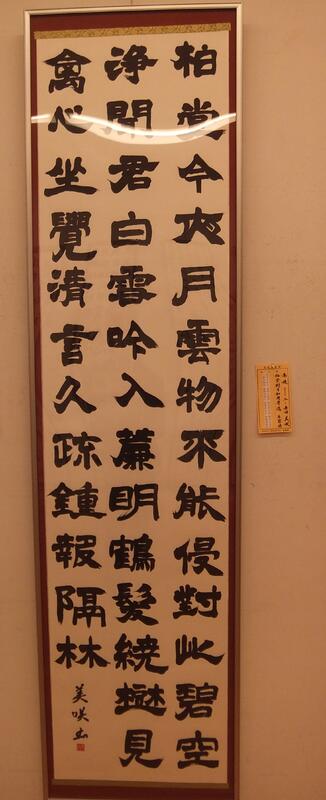 柏堂今夜月雲物不能侵對此碧空
浄聞君白雪吟入簾明鶴髮繞樾見
禽心坐覺清言久疏鍾報隔林
美咲書